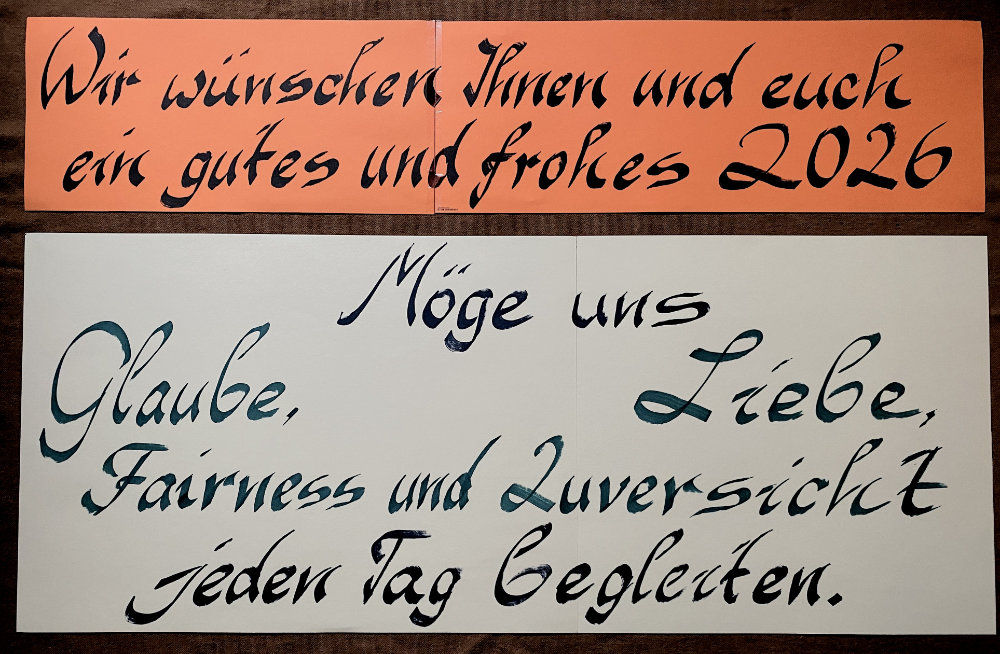 Wir wünschen Ihnen und euch
ein gutes und frohes 2026
Möge uns
Glaube, Liebe,
Fairness und Zuversicht
jeden Tag begleiten.